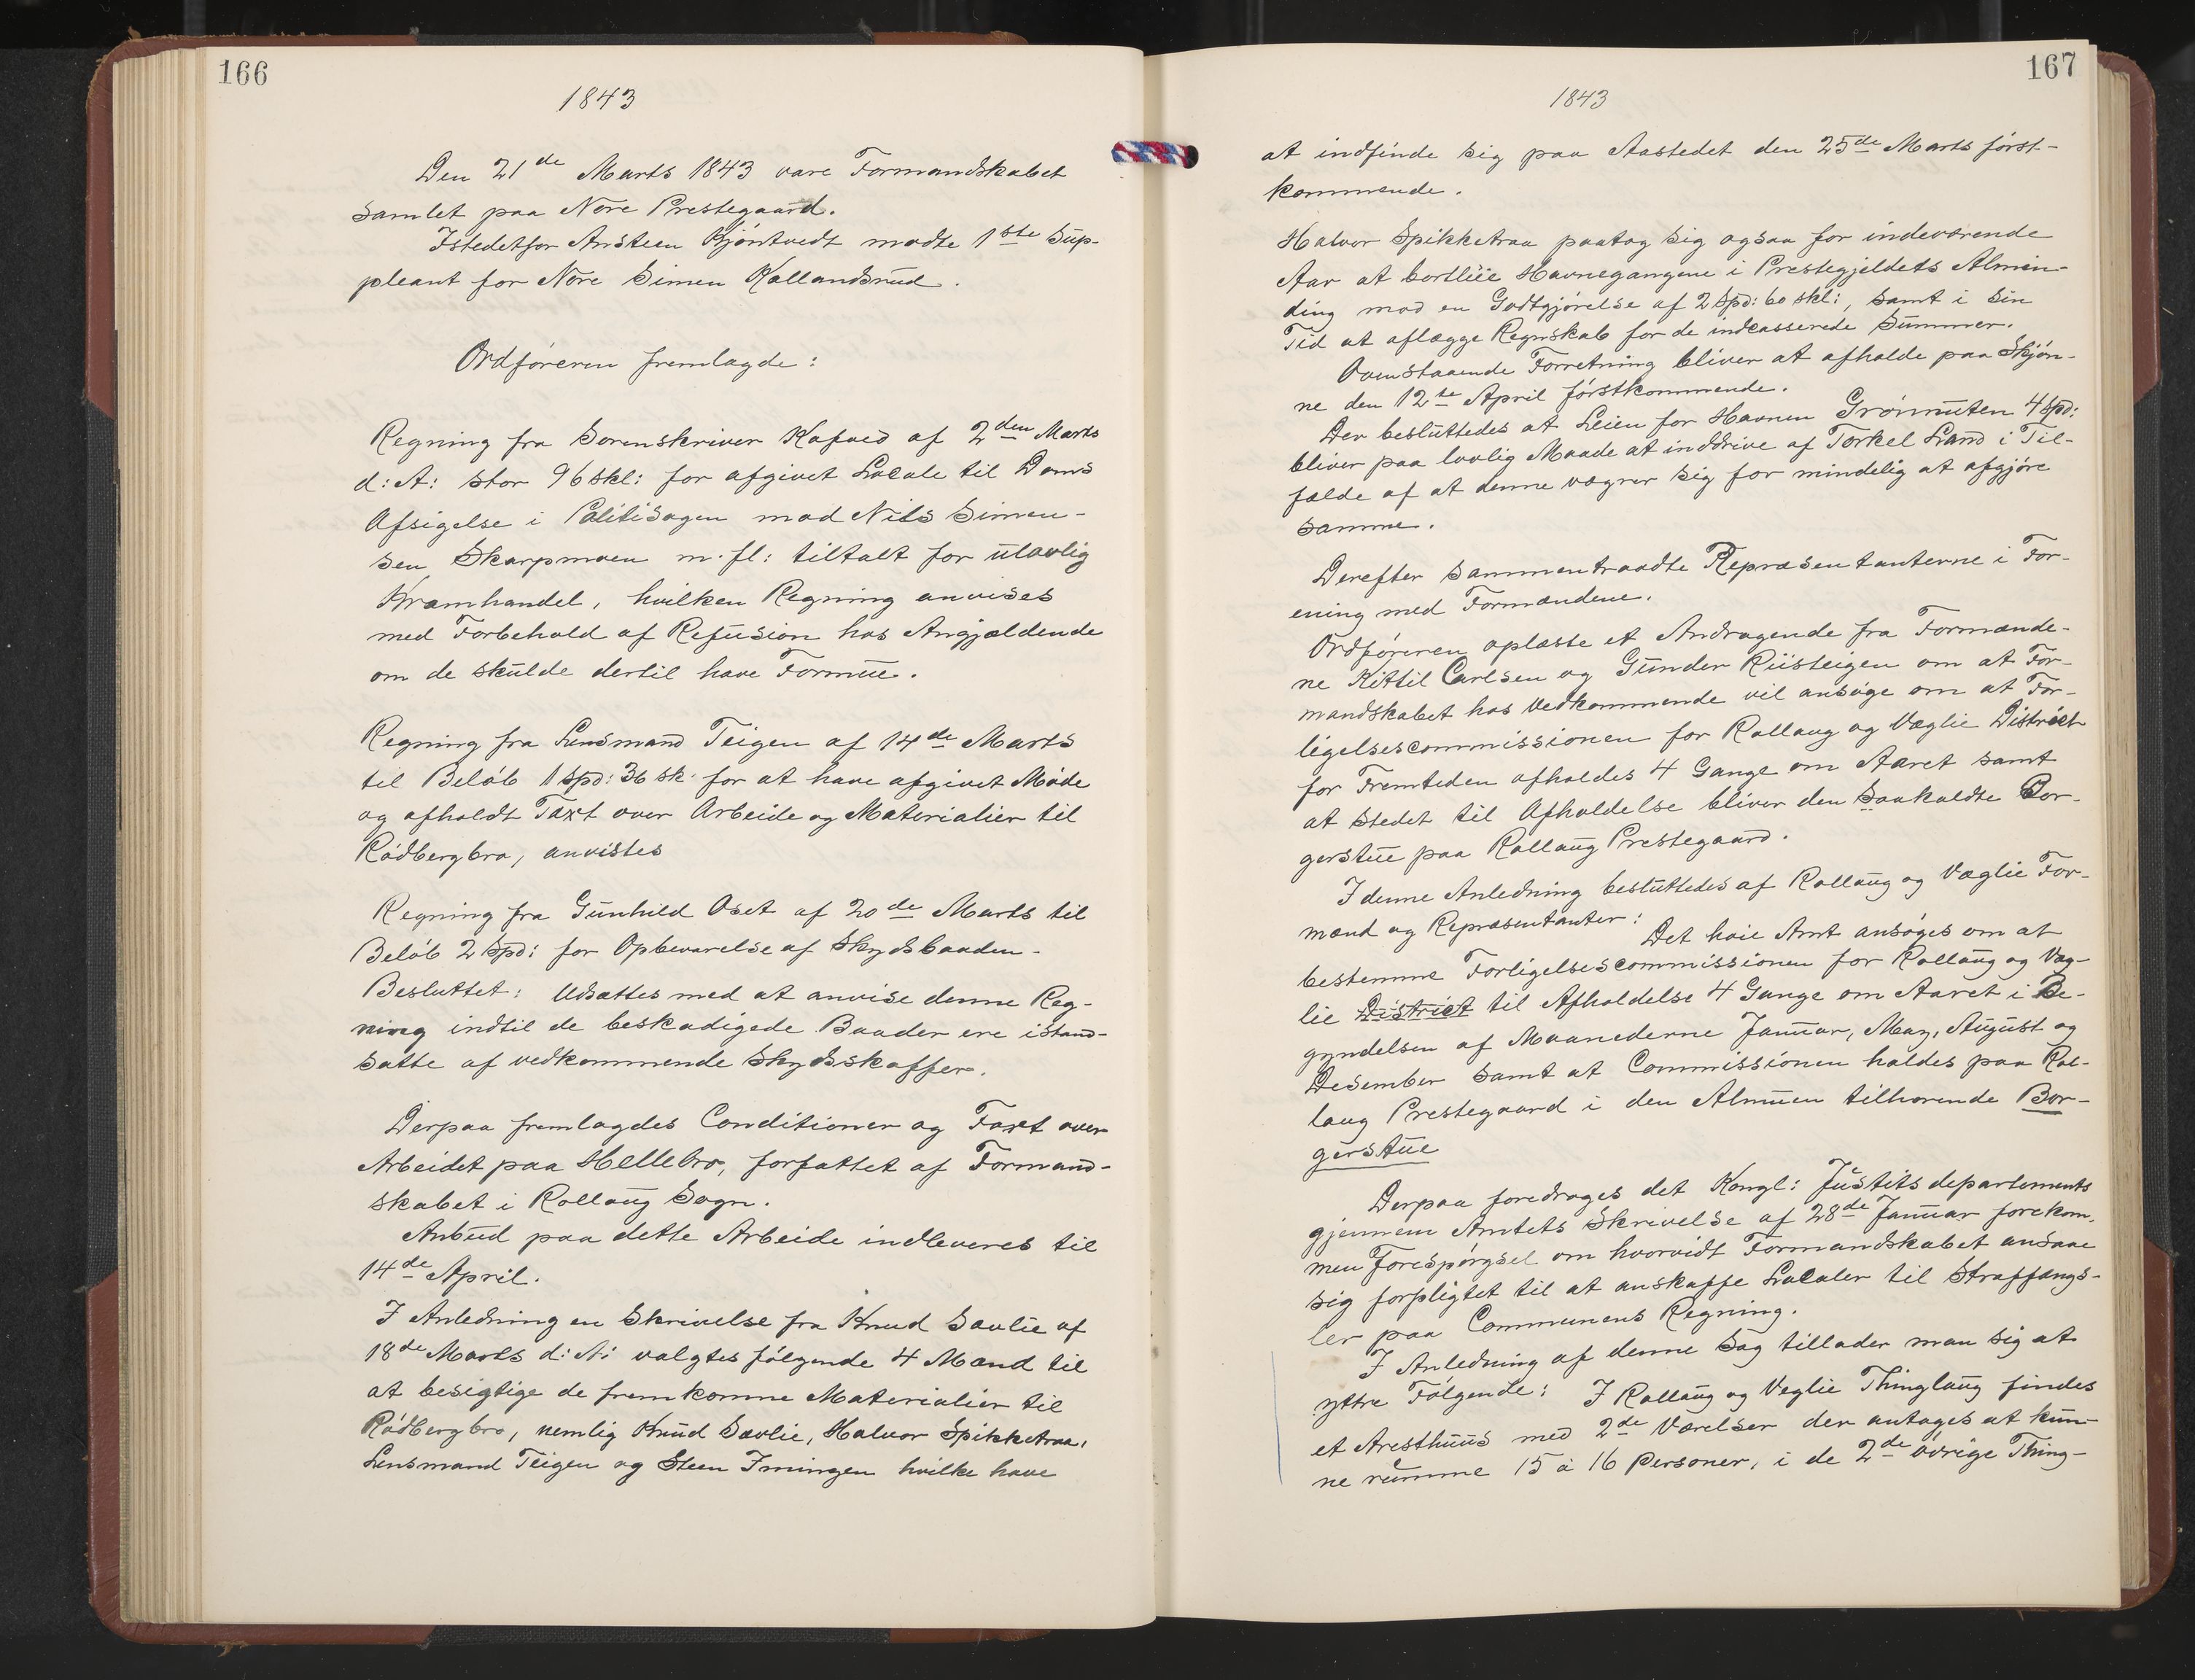 166
1843
Den 21de Marts 1843 vare Formandskabet
samlet paa Nore Prestegaard.
Istedetfor Ansteen Kjöntvedt mødte 1ste Sup-
pleant for Nore Simen Kallandsrud.
Ordføreren fremlagde:
Regning fra Sorenskriver Kafved af 2den Marts
d: A: stor 96 skl: for afgivet Locale til Doms
Afsigelse i Politisagen mod Nils Simen-
sen Skarpmoen m. fl: tiltalt for ulovlig
Kramhandel, hvilken Regning anvises
med Forbehold af Refusion hos Angjældende
om de skulde dertil have Formue.
Regning fra Lensmand Teigen af 14de Marts
til Beløb 1 Spd: 36 sk. for at have afgivet Møde
og afholdt Taxt over Arbeide og Materialier til
Rødbergbro, anvistes
Regning fra Gunhild Oset af 20de Marts til
Beløb 2 Spd: for Opbevarelse af Skydsbaaden.
Besluttet: Udsættes med at anvise denne Reg-
ning indtil de beskadigede Baader ere istand-
satte af vedkommende Skydsskaffer.
Derpaa fremlagdes Conditioner og Taxt over
Arbeidet paa Hellebro, forfattet af Formand-
skabet i Rollaug Sogn.
Anbud paa dette Arbeide indleveres til
14de April.
I Anledning en Skrivelse fra Knud Sævlie af
18de Marts d: A: valgtes følgende 4 Mænd til
at besigtige de fremkomne Materialier til
Rødbergbro, nemlig Knud Sævlie, Halvor Spikketraa,
Lensmand Teigen og Steen Imingen hvilke have
167
1843
at indfinde sig paa Aastedet den 25de Marts først-
kommende.
Halvor Spikketraa paatog sig ogsaa for indeværende
Aar at bortleie Havnegangene i Prestegjeldets Almin-
ding mod en Godtgjørelse af 2 Spd: 60 skl:, samt i sin
Tid at aflægge Regnskab for de indcasserede Summer.
Ovenstaaende Forretning bliver at afholde paa Skjøn-
ne den 12te April førstkommende.
Der besluttedes at Leien for Havnen Grønnuten 4 Spd:
bliver paa lovlig Maade at inddrive af Torkel Sand i Til-
fælde af at denne vægrer sig for mindelig at afgjøre
samme.
Derefter sammentraadte Repræsentanterne i For-
ening med Formændene.
Ordføreren oplæste et Andragende fra Formænde-
ne Kittil Carlsen og Gunder Rusteigen om at For-
mandskabet hos Vedkommende vil ansøge om at For-
ligelsescommissionen for Rollaug og Væglie District
for Fremtiden afholdes 4 Gange om Aaret samt
at Stedet til Afholdelse bliver den saakaldte Bor-
gerstue paa Rollaug Prestegaard.
I denne Anledning besluttedes af Rollaug og Væglie For-
mænd og Repræsentanter: Det høie Amt ansøges om at
bestemme Forligelsescommissionen for Rollaug og Væg-
lie District til Afholdelse 4 Gange om Aaret i Be-
gyndelsen af Maanederne Januar, May, August og
Desember samt at Commissionen holdes paa Rol-
laug Prestegaard i den Almuen tilhørende Bor-
gerstue
Derpaa foredroges det Kongl: Justitsdepartements
gjennem Amtets Skrivelse af 28de Januar forekom,
men Forespørgsel om hvorvidt Formandskabet ansaae
sig forpligtet til at anskaffe Localer til Straffangs-
ler paa Communens Regning.
I Anledning af denne Sag tillader man sig at
yttre Følgende: I Rollaug og Veglie Thinglaug findes
et Aresthuus med 2de Værelser der antages at kun-
ne rumme 15 à 16 Personer, i de 2de øvrige Thing-